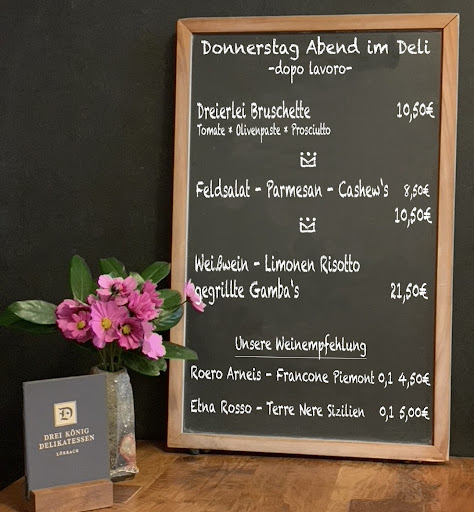 Donnerstag Abend im Deli
-dopo lavoro-
Dreierlei Bruschette 10,50€
Tomate * Olivenpaste * Prosciutto
Feldsalat - Parmesan - Cashew's 8,50€
10,50€
Weißwein - Limonen Risotto
gegrillte Gamba's 21,50€
Unsere Weinempfehlung
Roero Arneis - Francone Piemont 0,1 4,50€
Etna Rosso - Terre Nere Sizilien 0,1 5,00€
D
DREI KÖNIG
DELIKATESSEN
LÖRRACH